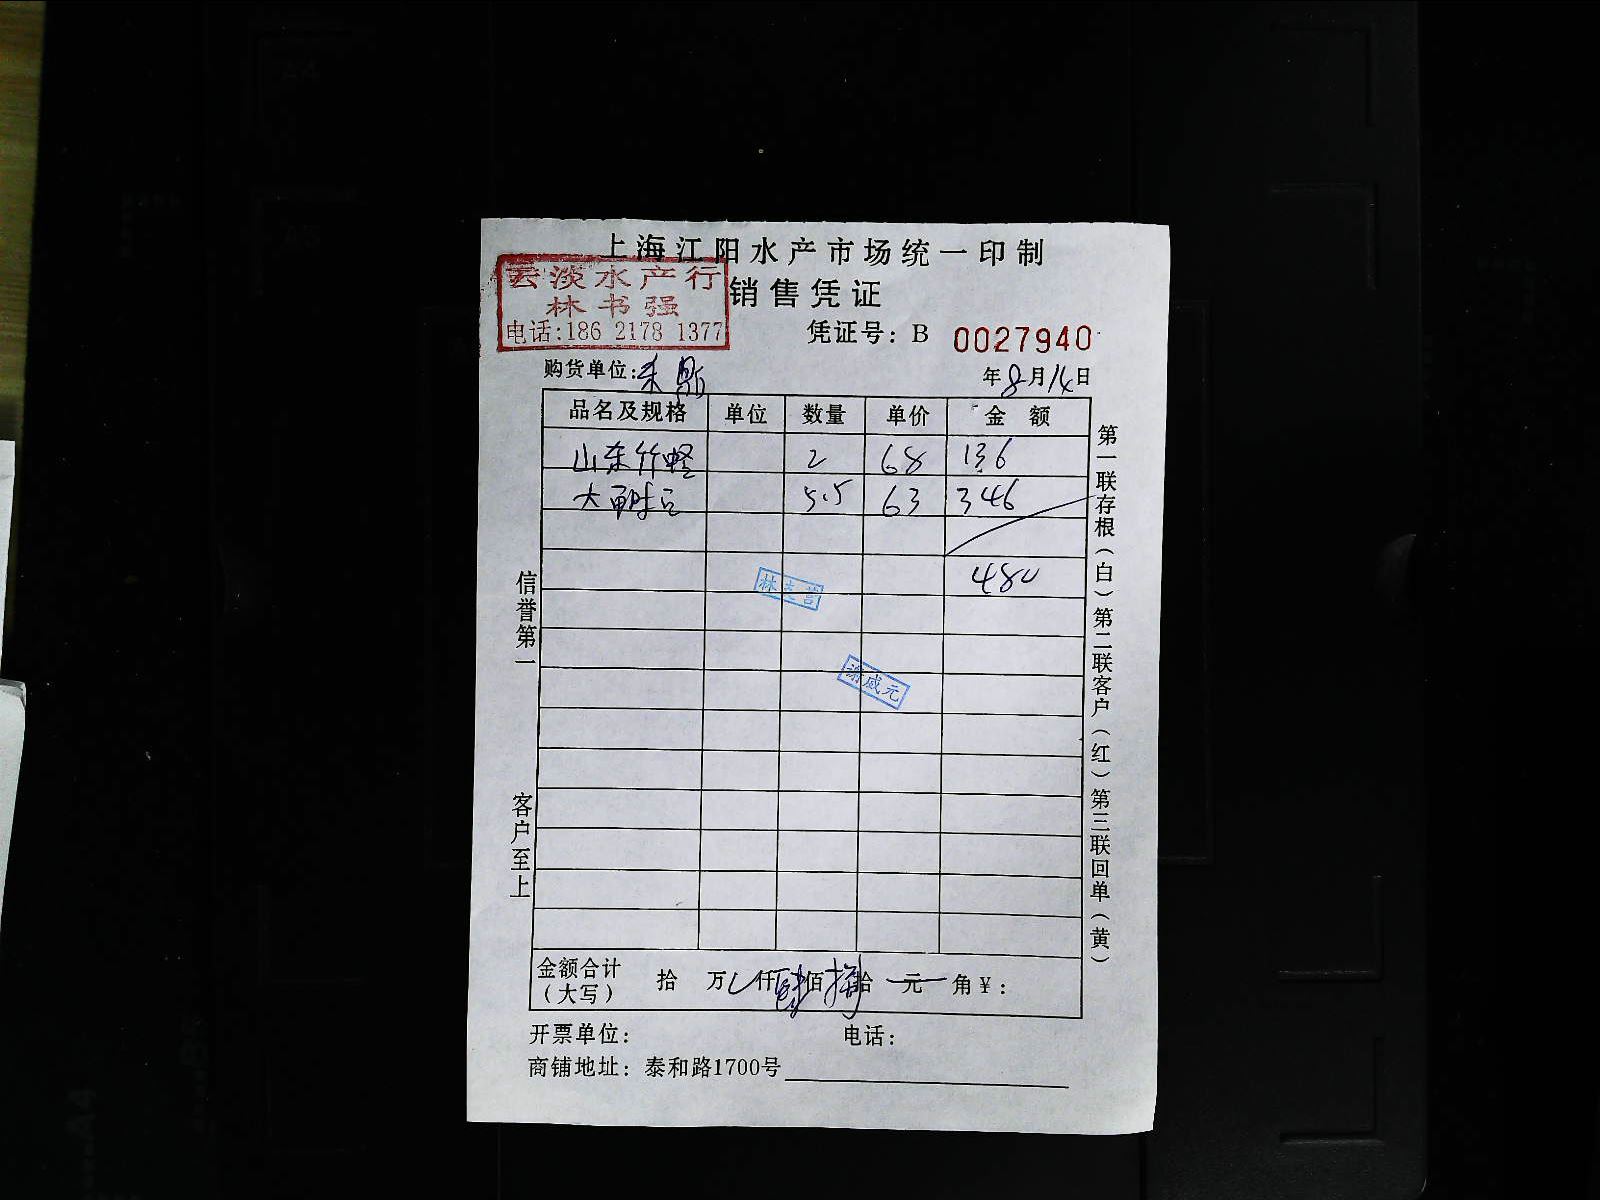 上海江阳水产市场统一印制
云淡水产行
林书强
电话:186 2178 1377
销售凭证
凭证号: B 0027940
购货单位:
年8月14日
品名及规格 单位 数量 单价 金额
山东竹蛏 2 68 136
大 5.5 63 346
480
林
谢咸元
信誉第一
客户至上
第一联存根(白)第二联客户(红)第三联回单(黄)
金额合计(大写) 拾 万 仟肆佰捌拾 元 角¥:
开票单位: 电话:
商铺地址: 泰和路1700号